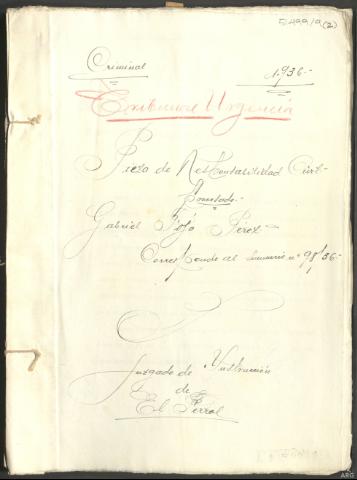 5499/9(2)
Criminal
1.936.-
Urgencia
Pieza de Responsabilidad Civil-
Gabriel Pérez-
Corresponde al Sumario nº 98/36.-
Juzgado de Instrucción
de
El Ferrol
ARG